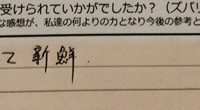 受けられていかがでしたか？（ズバリ
な感想が、私達の何よりの力となり今後の参考と
て新鮮.